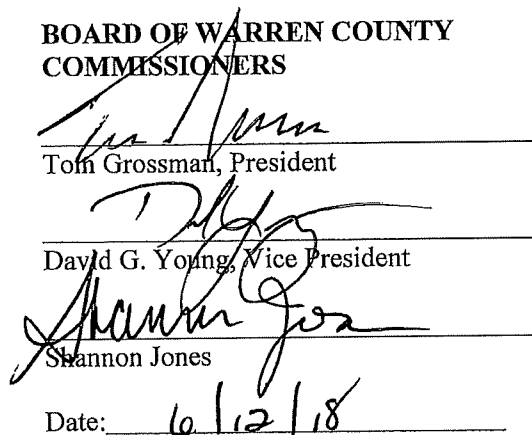 BOARD OF WARREN COUNTY
COMMISSIONERS
Tom Grossman, President
David G. Young, Vice President
Shannon Jones
Shannon Jones
Date: 6/12/18